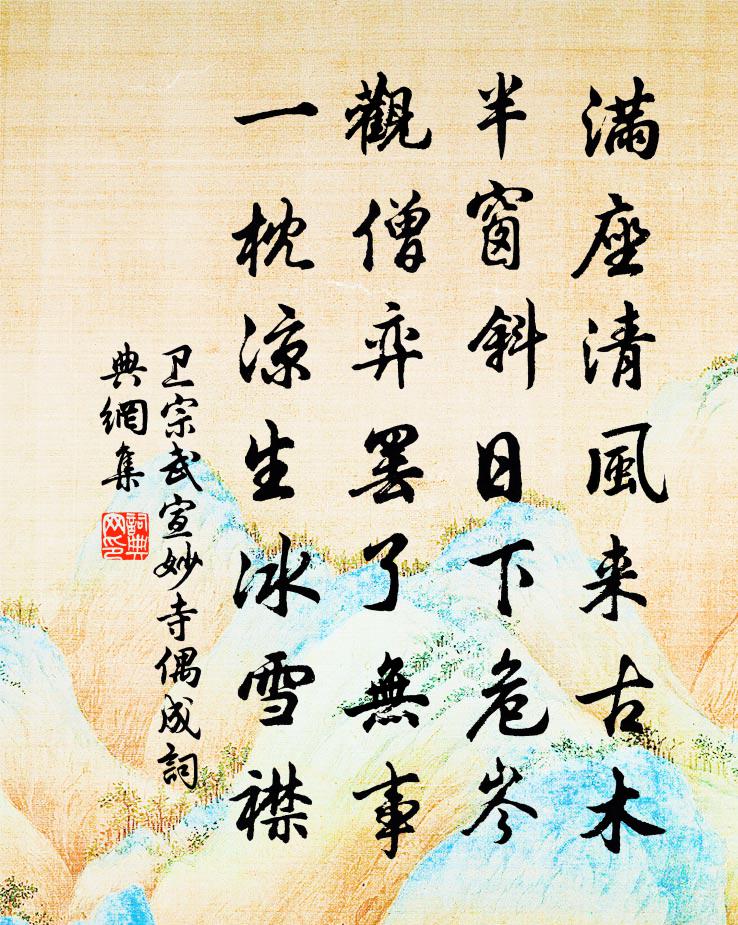 满座清風来古木
半窗斜日下危岑
觀僧弈罢了無事
一枕凉生冰雪襟
卫宗武宣妙寺偶成詞
典網集
詞典
网印